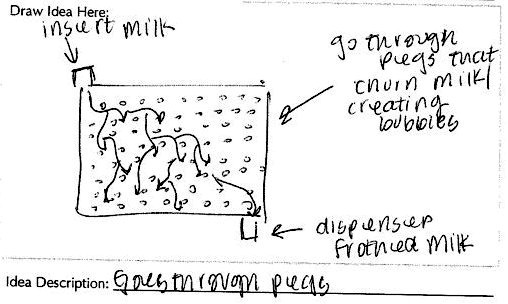 Draw Idea Here:
insert milk
go through
pegs that
churn milk/
creating
bubbles
dispenser
frothed milk
Idea Description: Goes through pegs